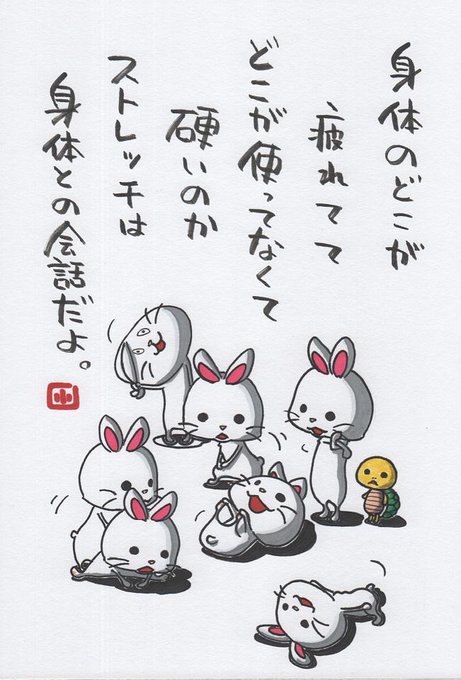 身体のどこが
疲れてて
どこが使ってなくて
硬いのか
ストレッチは
身体との会話だよ。